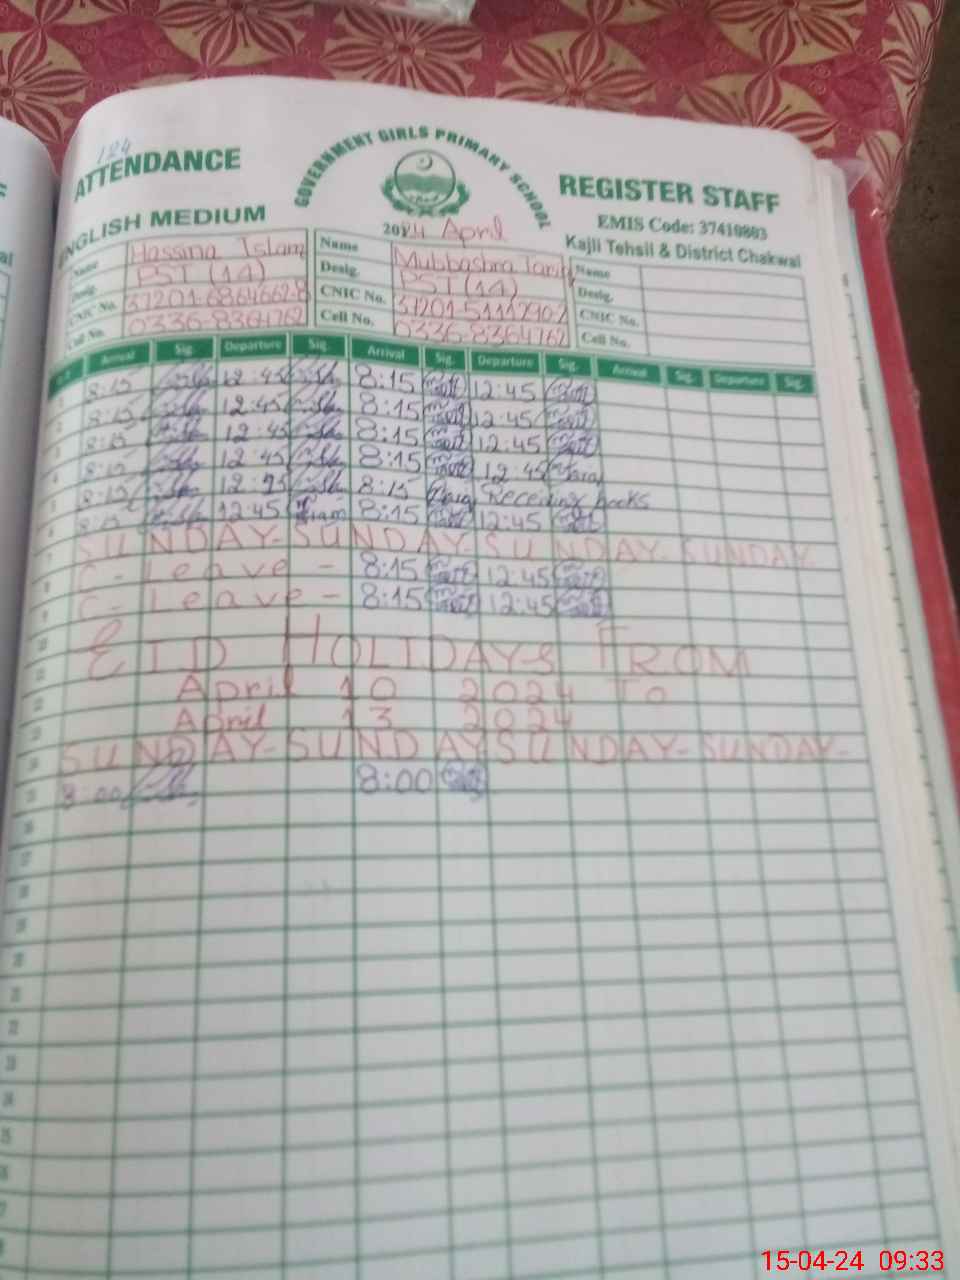 124
ATTENDANCE
GOVERNMENT GIRLS PRIMARY SCHOOL
REGISTER STAFF
ENGLISH MEDIUM
2024 April
EMIS Code: 37410803
Kajli Tehsil & District Chakwal
Name Hassina Islam Name Mubbashra Tariq Name
Desig. PST (14) Desig. PST (14) Desig.
CNIC No. 37201-6864662-8 CNIC No. CNIC No.
Cell No. 0336-8364762 Cell No. 0336-8364762 Cell No.
Arrival Sig. Departure Sig. Arrival Sig. Departure Sig. Arrival Sig. Departure Sig.
1 8:15 12:45 8:15 12:45
2 8:15 12:45 8:15 12:45
3 8:15 12:45 8:15 12:45
4 8:15 12:45 8:15 12:45
5 8:15 12:45 8:15 Receiving books
6 8:15 12:45 8:15 12:45
7 SUNDAY-SUNDAY-SUNDAY-SUNDAY
8 C-Leave- 8:15 12:45
9 C-Leave- 8:15 12:45
10 EID HOLIDAYS FROM
11 April 10 2024 To
12 April 13 2024
14 SUNDAY-SUNDAY SUNDAY-SUNDAY-
15 8:00 8:00
16
17
18
19
20
21
22
23
24
25
26
27
15-04-24 09:33